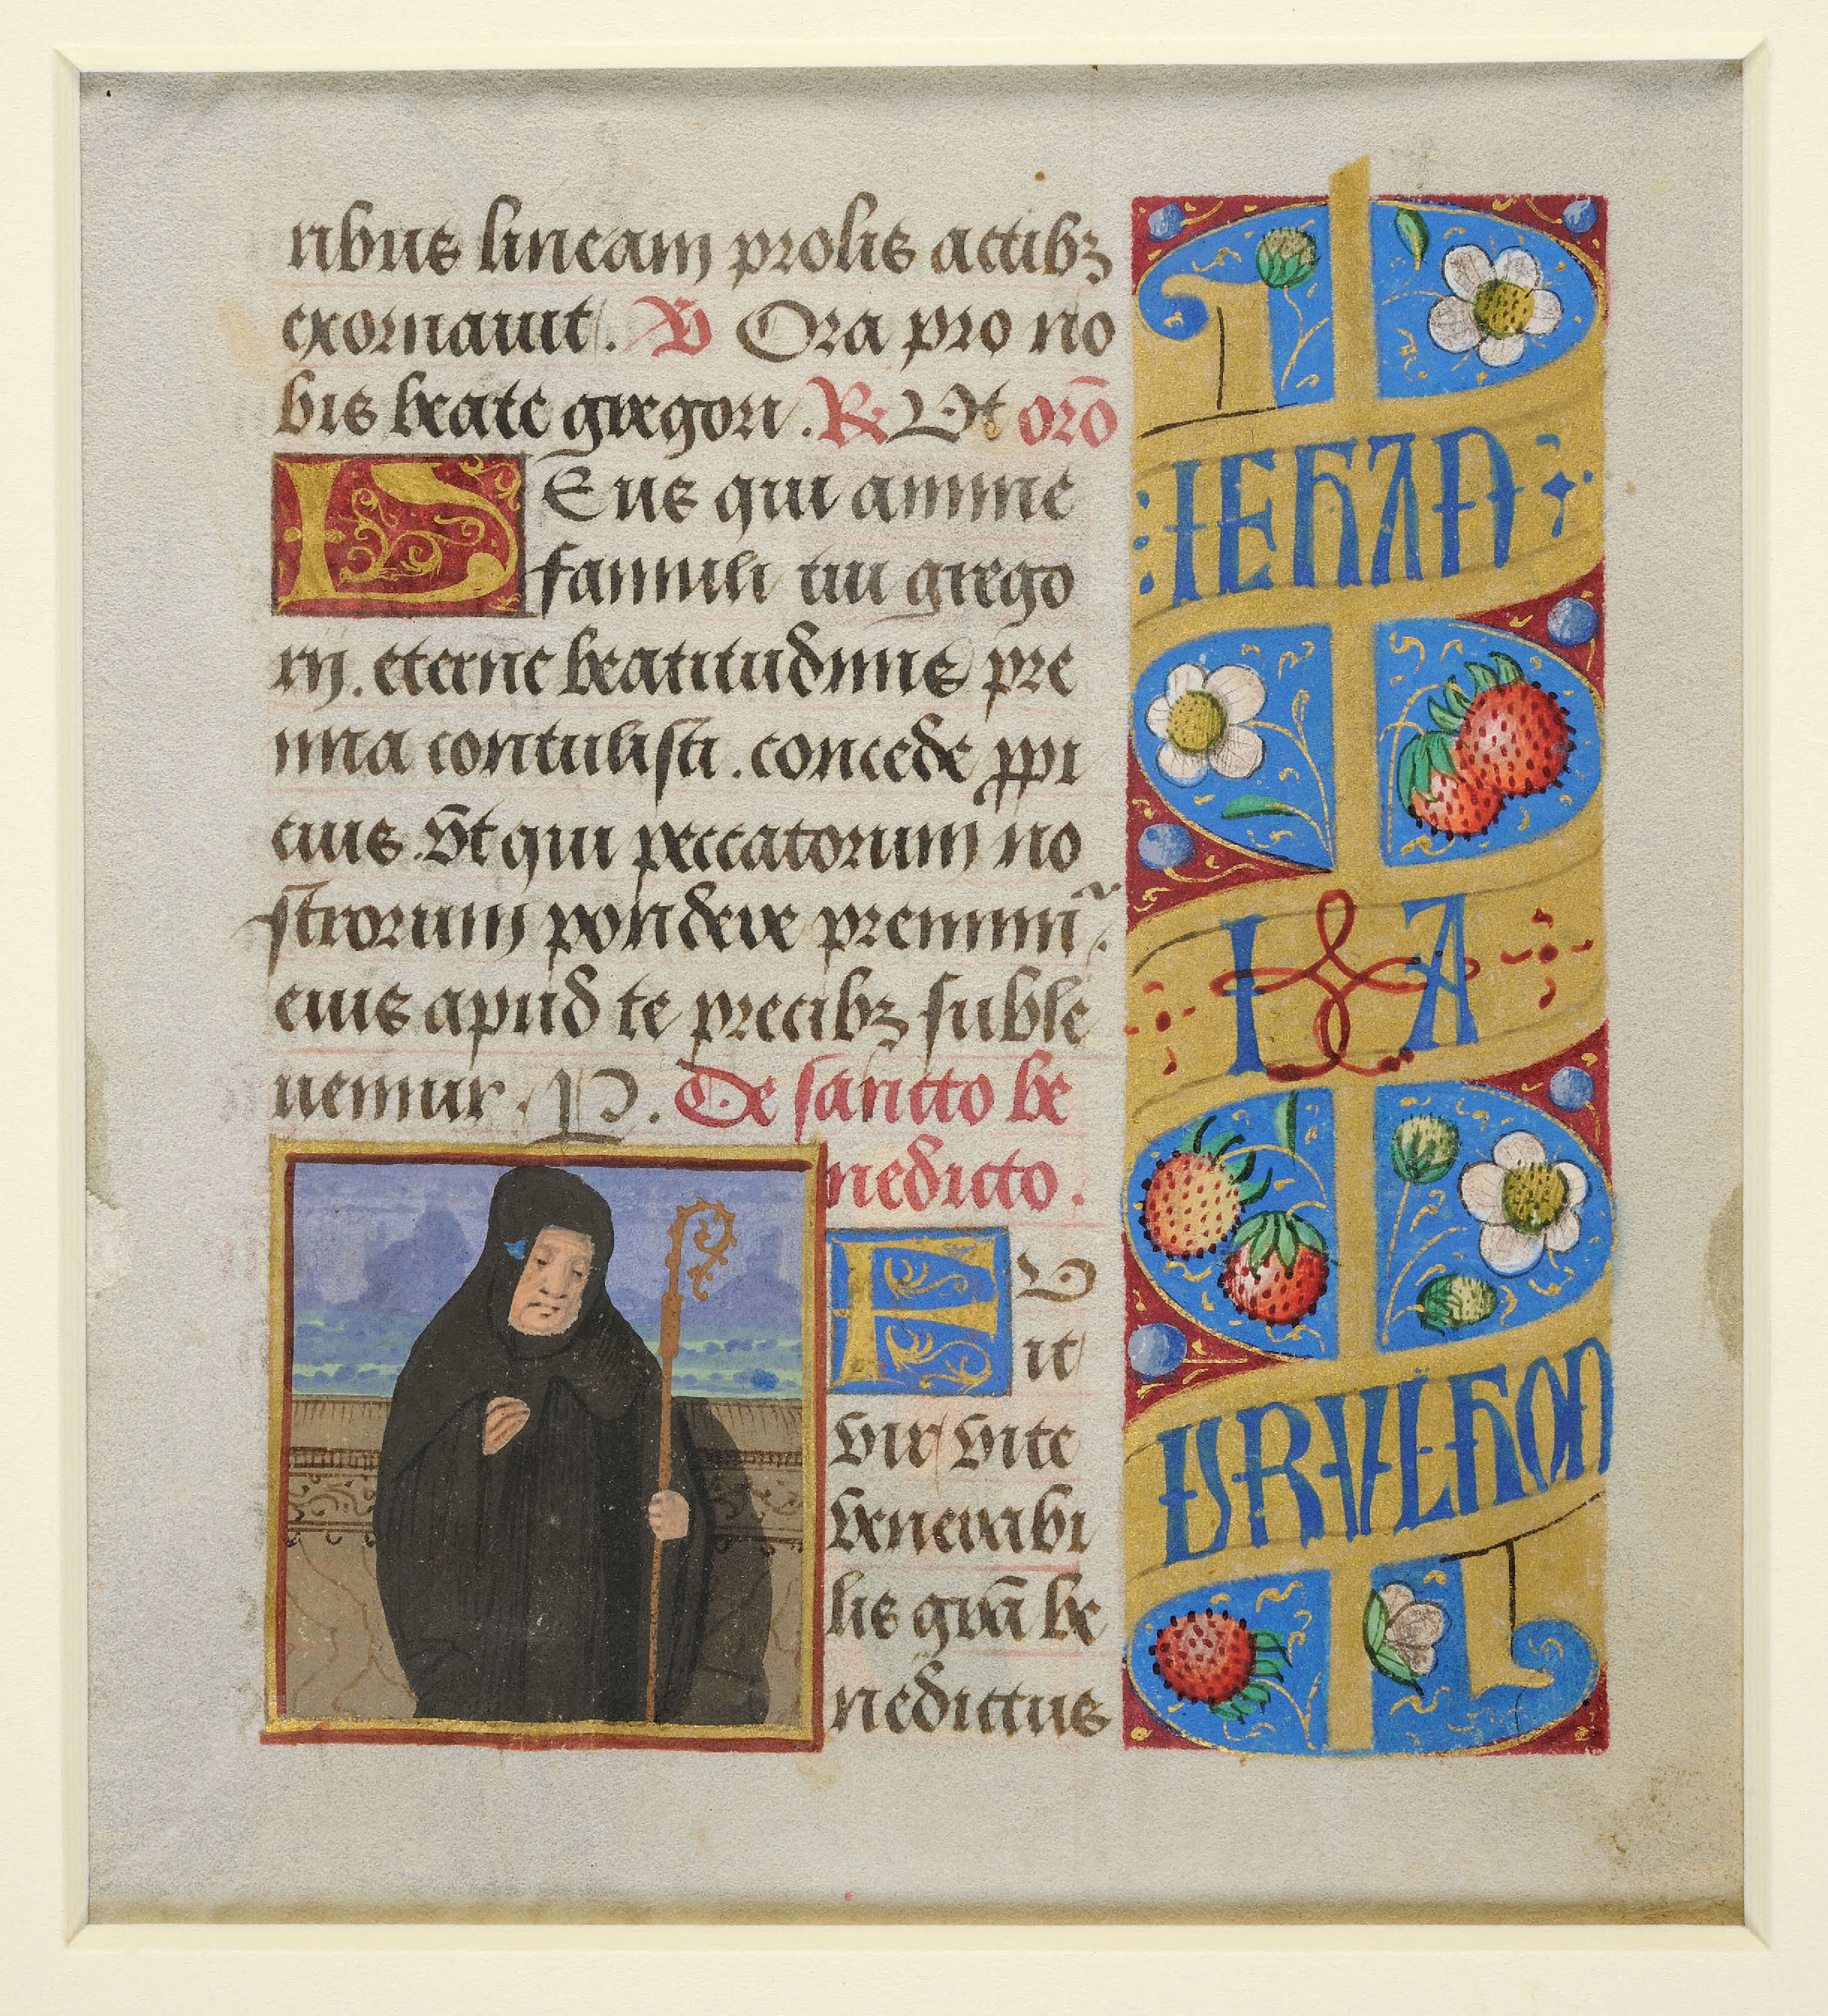 ribus lineam prolis actibꝫ
exornauit. ℣ Ora pro no
bis beate gregori. ℟ Vt orō
DEus qui anime
famuli tui grego
rij. eterne beatitudinis pre
mia contulisti. concede ꝓpi
cius. Vt qui peccatorum no
strorum pondere premimur̃.
eius apud te precibꝫ suble
uemur. P. De sancto be
nedicto.
FV
it
vir vite
venerabi
lis grā be
nedictus
IEHAN
I A
BRVLHON